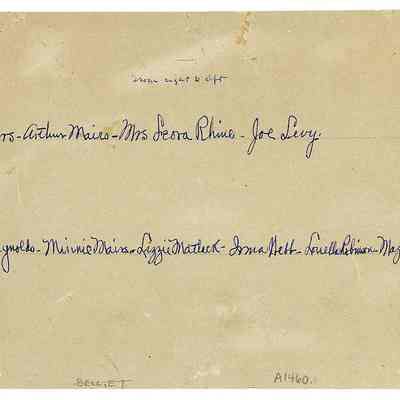 from right to left
rs-Arthur Mairs-Mrs Leora Rhino-Joe Levy.
ynolds-Minnie Mairs-Lizzie Matlack-Irma Hebb-Louella Robinson-Mag
A1460.